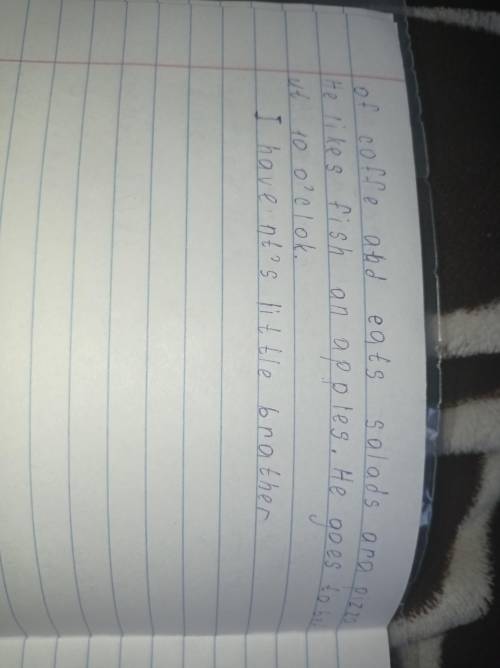 of coffe and eats salads ara pizza
He likes fish an apples. He goes to
ut 10 o'clok.
I have nt's little brather